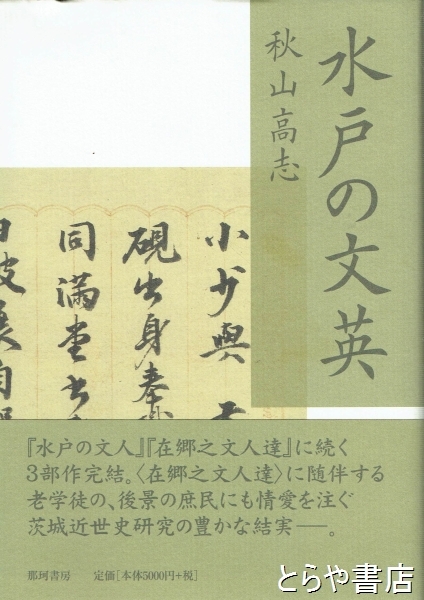 水戸の文英
秋山高志
小少與
硯出身奉
同満堂
『水戸の文人』『在郷之文人達』に続く
3部作完結。〈在郷之文人達〉に随伴する
老学徒の、後景の庶民にも情愛を注ぐ
茨城近世史研究の豊かな結実──。
那珂書房 定価[本体5000円+税]
とらや書店